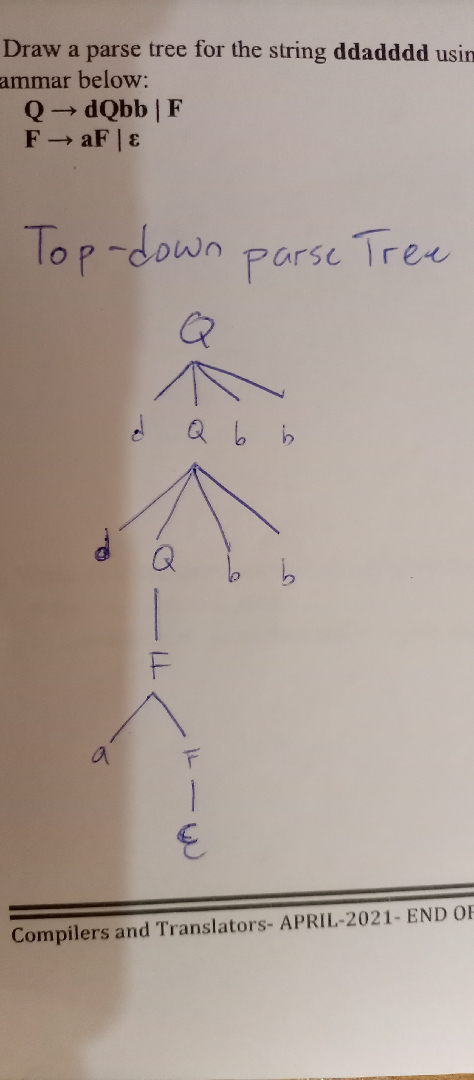 Draw a parse tree for the string ddadddd usin
ammar below:
Q → dQbb | F
F → aF | ε
Top-down parse Tree
Q
d Q b b
d Q b b
F
a F
ε
Compilers and Translators- APRIL-2021- END OF